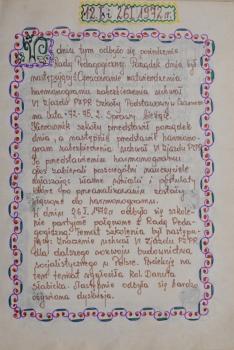 12. I i 26 I. 1972 r.
W dniu tym odbyło się posiedzenie
Rady Pedagogicznej. Porządek dnia był
następujący: Opracowanie zatwierdzenia
harmonogramu zabezpieczenia uchwał
VI Zjazdu PZPR Szkoły Podstawowej
na lata 72-75. 2. Sprawy bieżące.
Kierownik szkoły przedstawił porządek
dnia, a następnie przedstawił harmono-
gram zabezpieczenia uchwał VI Zjazdu PZPR
Po przedstawieniu harmonogramu
głos zabierali poszczególni nauczyciele
zgłaszając własne wnioski i postulaty,
które po przeanalizowaniu zostały
do harmonogramu.
W dniu 26 I. 1972 r. odbyło się szkole-
nie partyjne połączone z Radą Peda-
gogiczną. Temat szkolenia był następu-
jący: Znaczenie uchwał VI Zjazdu PZPR
dla dalszego rozwoju budownictwa
socjalistycznego w Polsce. Prelekcję na
ten temat wygłosiła kol. Danuta
Następnie odbyła się bardzo
ożywiona dyskusja.